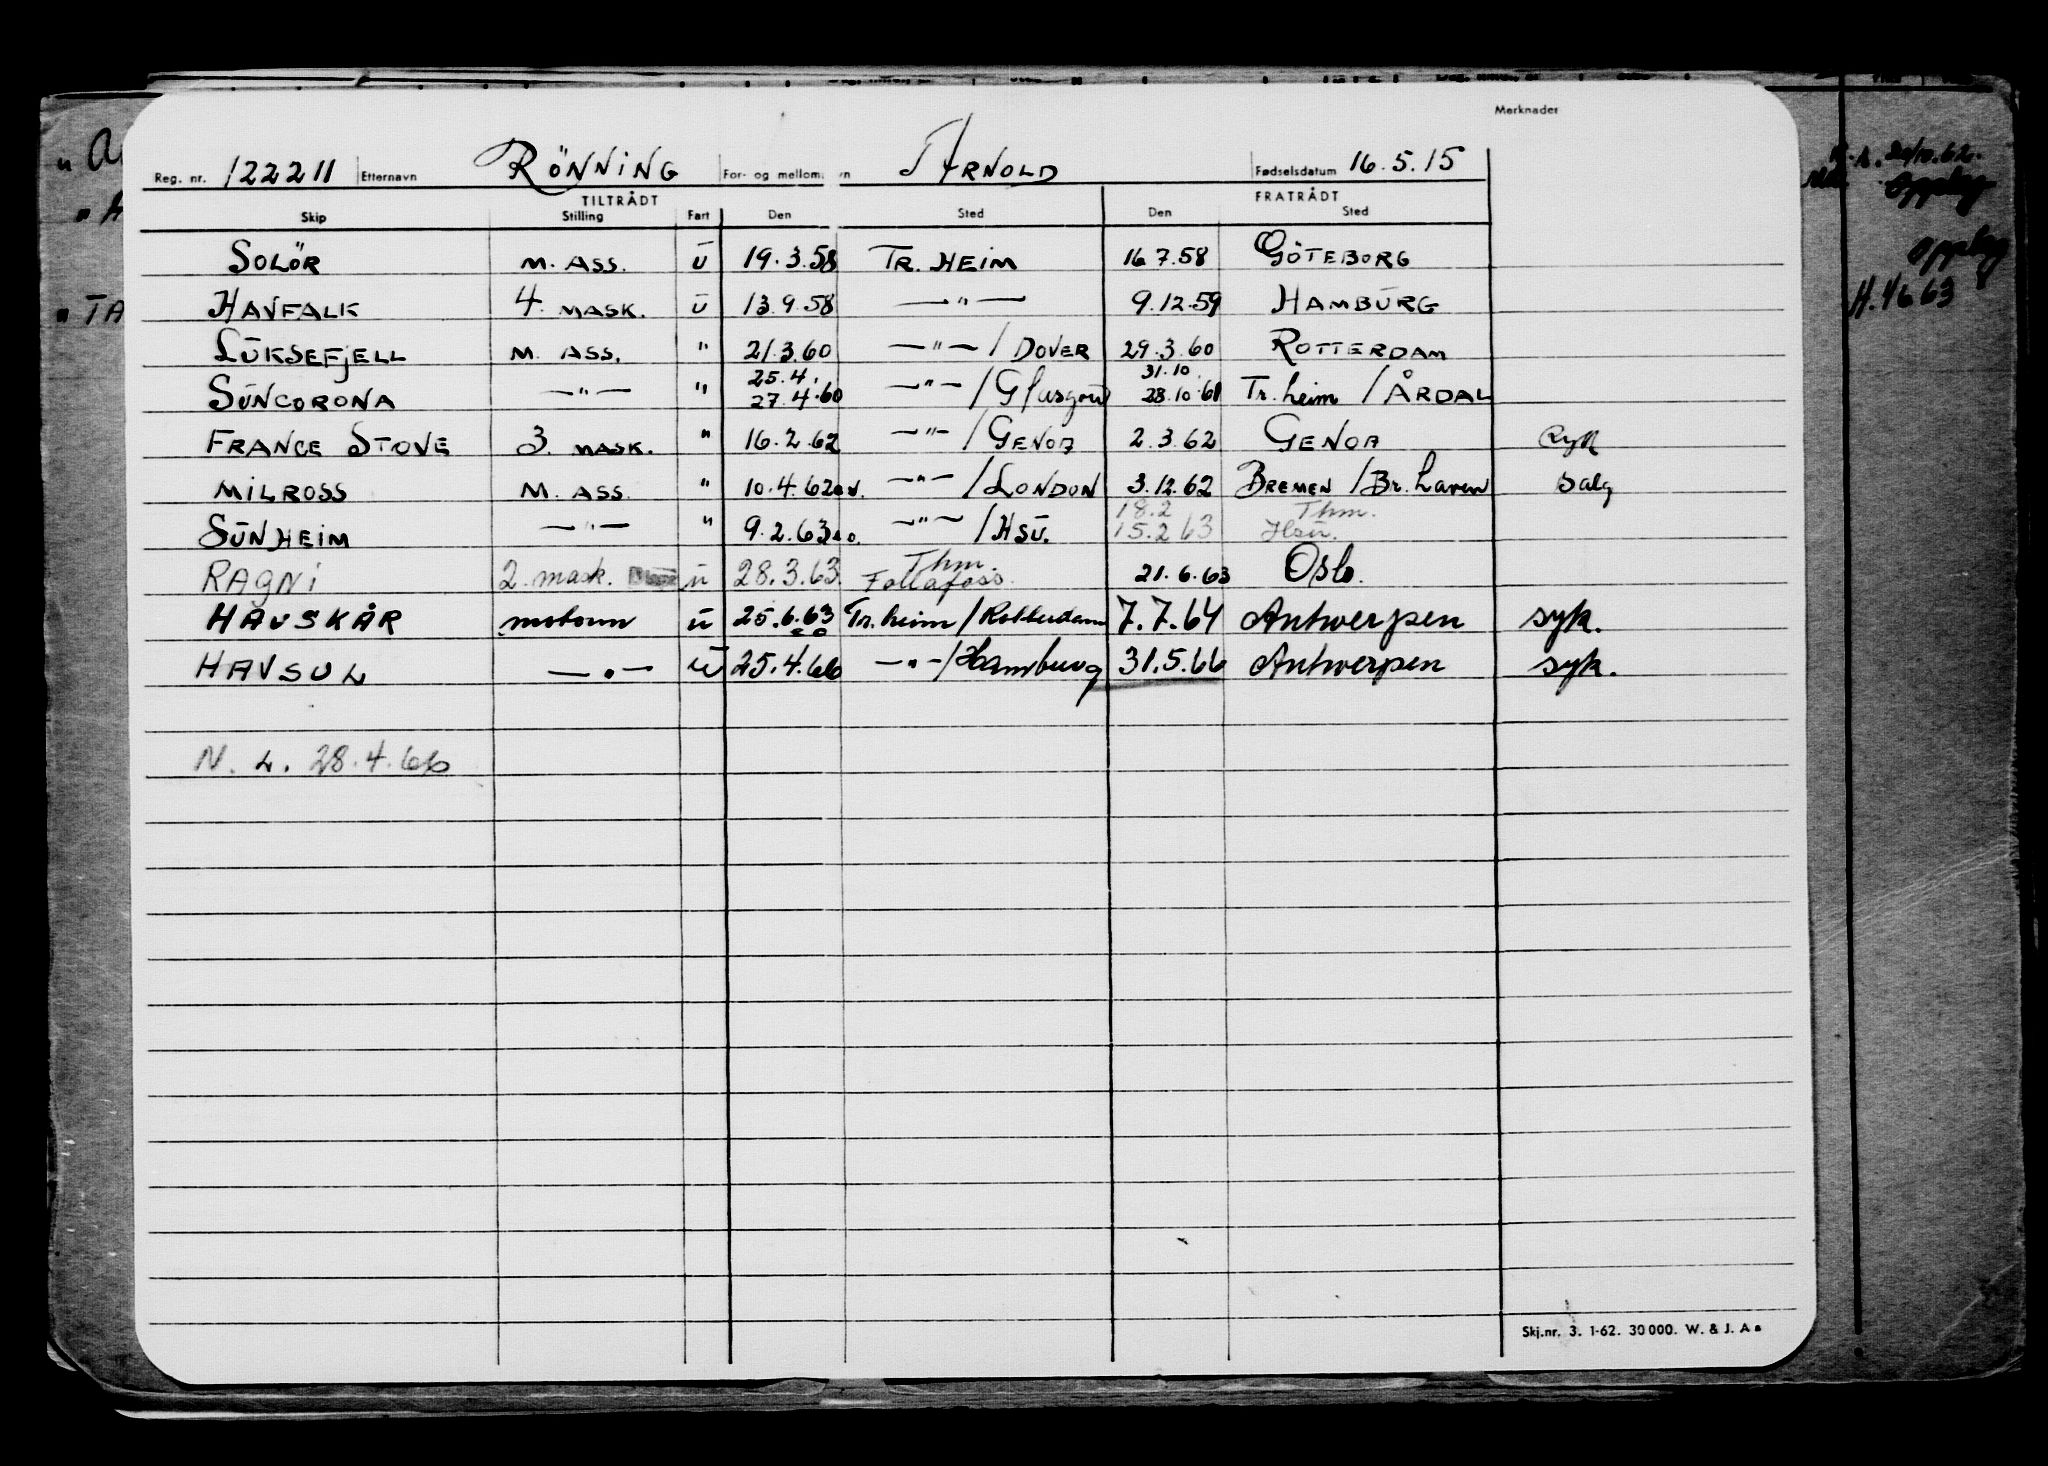 Merknader
Reg. nr. 122211 Etternavn RÖNNING For- og mellomnavn ARNOLD Fødselsdatum 16.5.15
TILTRÅDT FRATRÅDT
Skip Stilling Fart Den Sted Den Sted
SOLÖR M. ASS. U 19.3.58 TR. HEIM 16.7.58 GÖTEBORG
HAVFALK 4. MASK. U 13.9.58 —"— 9.12.59 HAMBURG
LUKSEFJELL M. ASS. " 21.3.60 —"— / DOVER 29.3.60 ROTTERDAM
25.4. 31.10.
SUNCORONA —"— " 27.4.60 —"— / Glasgow 28.10.61 Tr.heim / ÅRDAL
FRANCE STOVE 3. MASK. " 16.2.62 —"— / GENOA 2.3.62 GENOA
MILROSS M. ASS. " 10.4.62 —"— / LONDON 3.12.62 BREMEN / Br.haven Salg
18.2 Thm.
SUNHEIM —"— " 9.2.63 —"— / HSU. 15.2.63 Hsu.
Thm.
RAGNI 2. mask. u 28.3.63 Follafoss. 21.6.63 Oslo.
HAVSKÅR motorm u 25.6.63 Tr.heim / Rotterdam 7.7.64 Antwerpen syk.
HAVSUL —"— u 25.4.66 —"— / Hamburg 31.5.66 Antwerpen syk.
N. L. 28.4.66
Skj.nr. 3. 1-62. 30000. W. & J. A s
" TA
62.
Opplag
Opplag
63